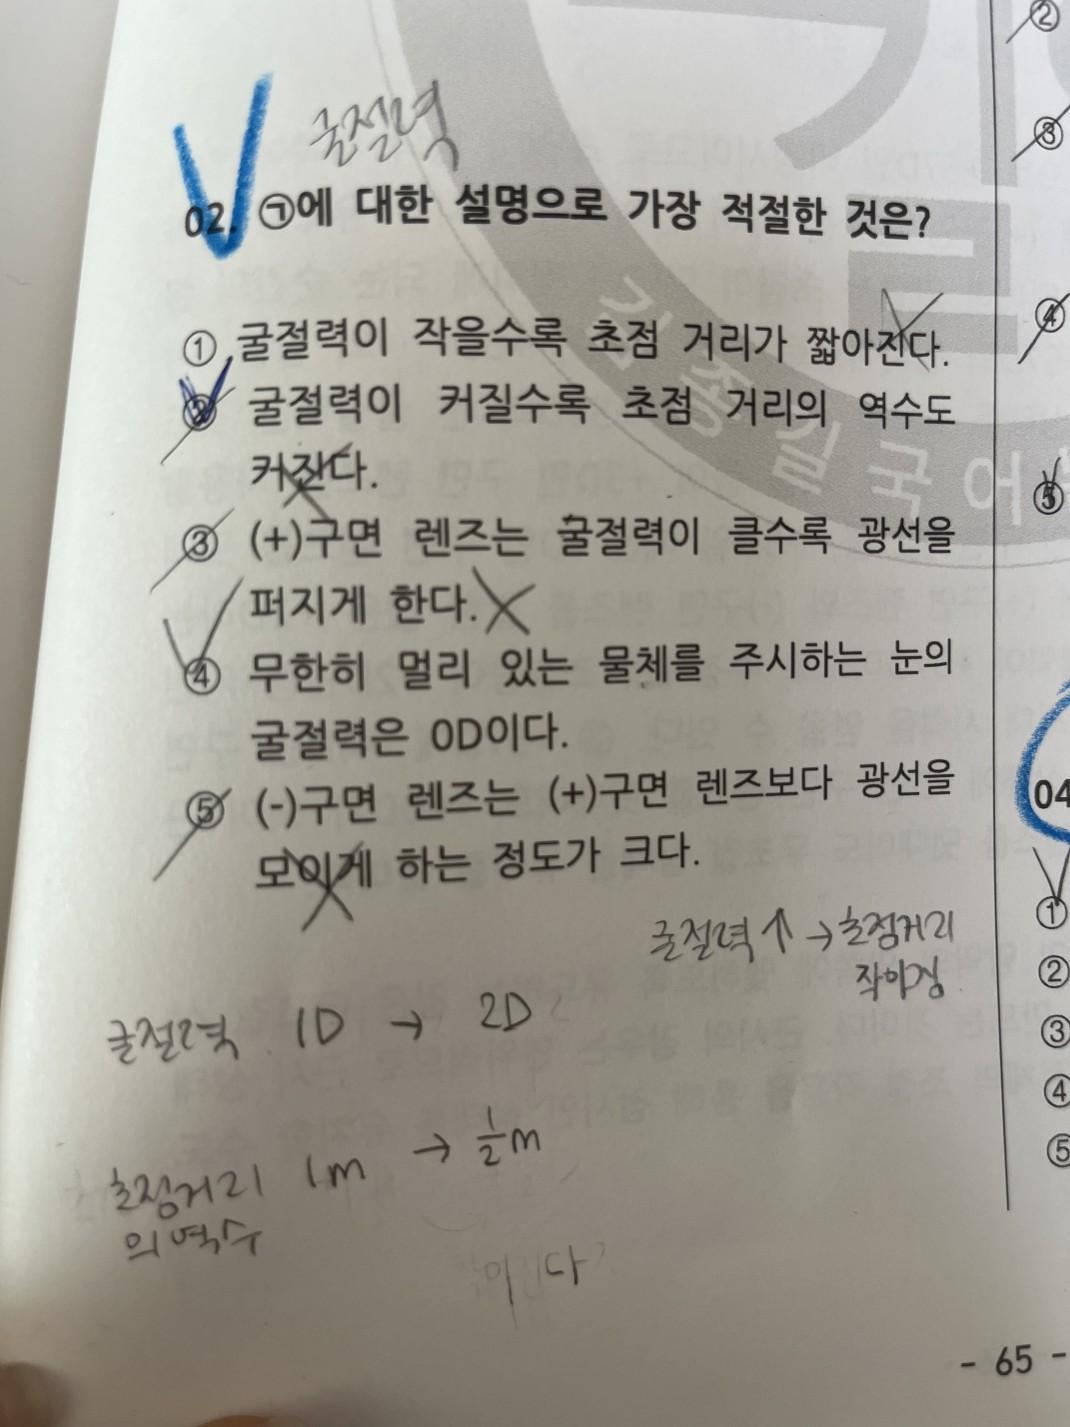 굴절력
02. ㉠에 대한 설명으로 가장 적절한 것은?
① 굴절력이 작을수록 초점 거리가 짧아진다.
② 굴절력이 커질수록 초점 거리의 역수도
커진다.
③ (+)구면 렌즈는 굴절력이 클수록 광선을
퍼지게 한다.
④ 무한히 멀리 있는 물체를 주시하는 눈의
굴절력은 0D이다.
⑤ (-)구면 렌즈는 (+)구면 렌즈보다 광선을
모이게 하는 정도가 크다.
굴절력 ↑ → 초점거리
작아짐
굴절력 1D → 2D
초점거리 1m → 1/2 m
의 역수
이다
- 65 -
②
③
④
⑤
04
①
②
③
④
⑤
김종일국어